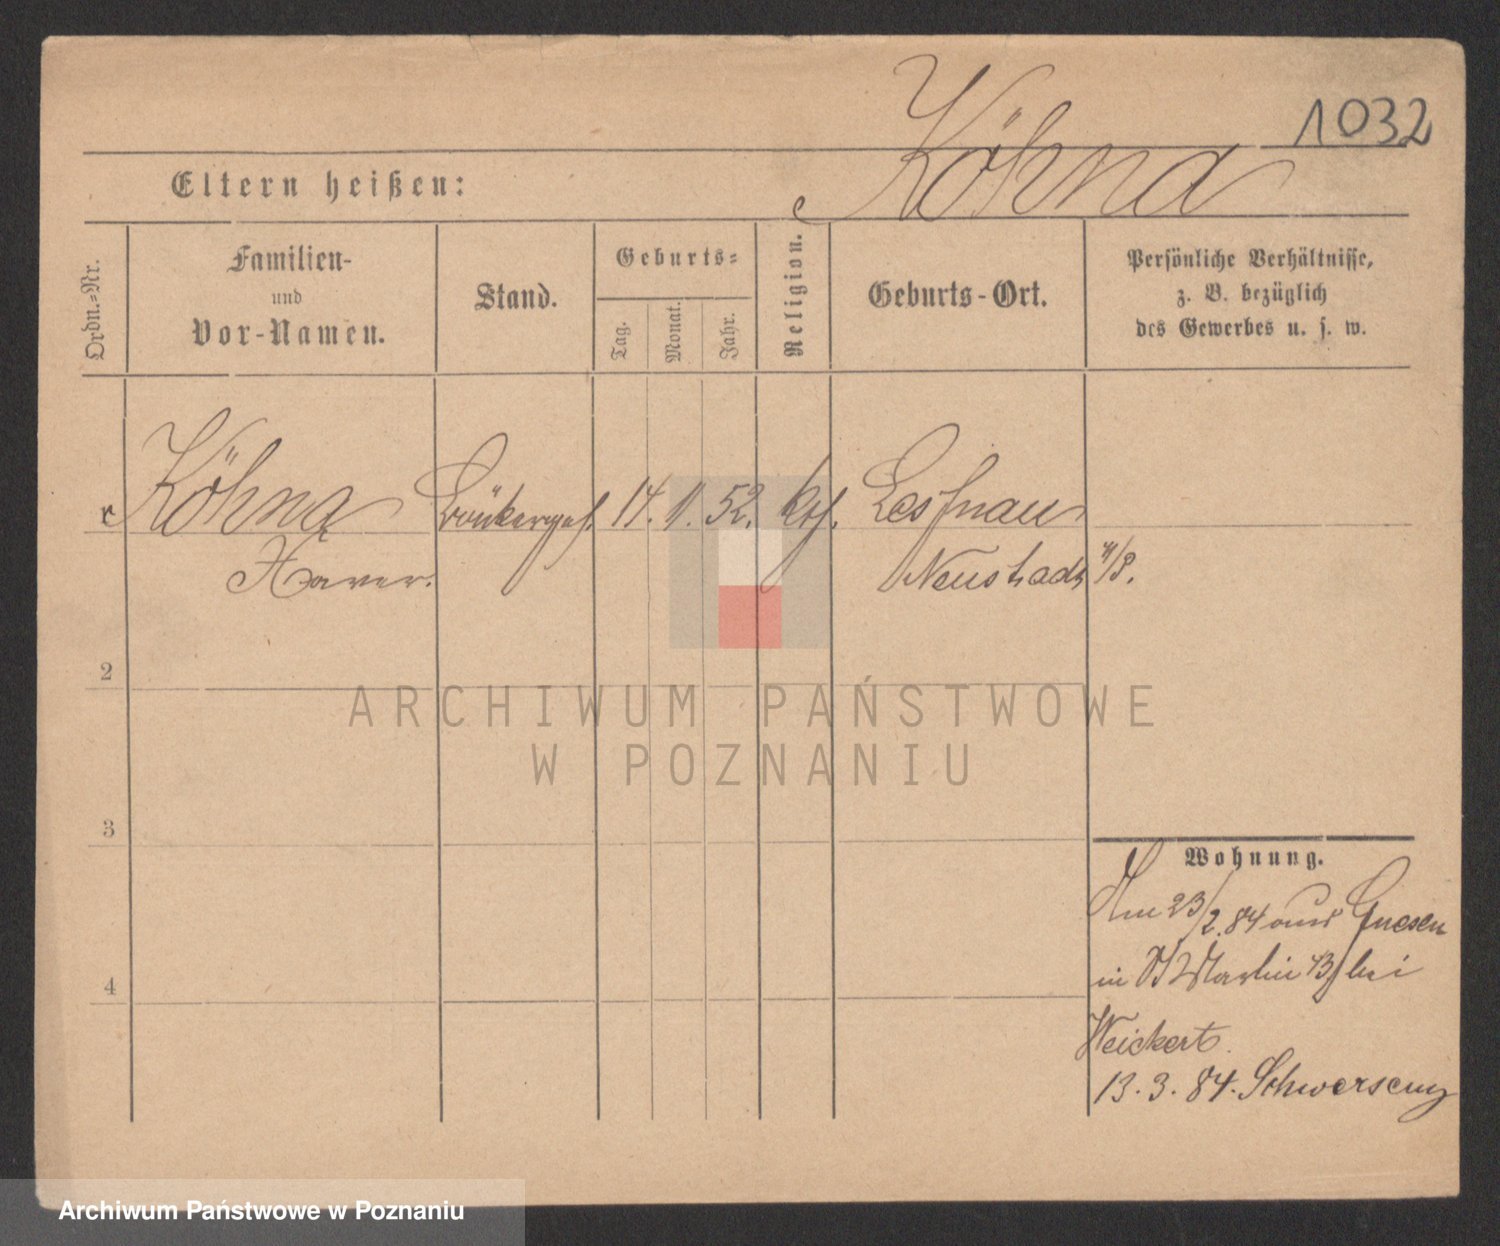 1032
Köhna
Eltern heißen:
Ordn.=Nr.
Familien-
und
Vor-Namen.
Stand.
Geburts=
Tag.
Monat.
Jahr.
Religion.
Geburts-Ort.
Persönliche Verhältnisse,
z. B. bezüglich
des Gewerbes u. s. w.
Köhna 14. 11. 52. kth.
Xaver. Neustadt
2
3
4
ARCHIWUM PAŃSTWOWE
W POZNANIU
Wohnung.
Am 23/2. 84 aus Gnesen
in St Martin 43 bei
Weickert.
13. 3. 84. Schwersenz
Archiwum Państwowe w Poznaniu